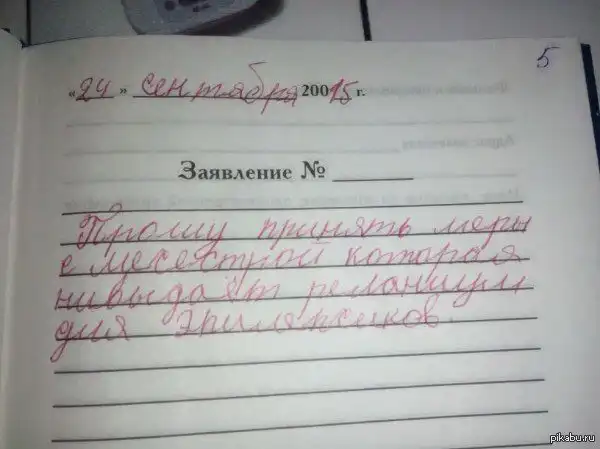 5
«24» сентября 20015 г.
Заявление № ______
Прошу принять меры
с месестрой которая
нивыдаёт реланиум
для эпилепсиков.
pikabu.ru